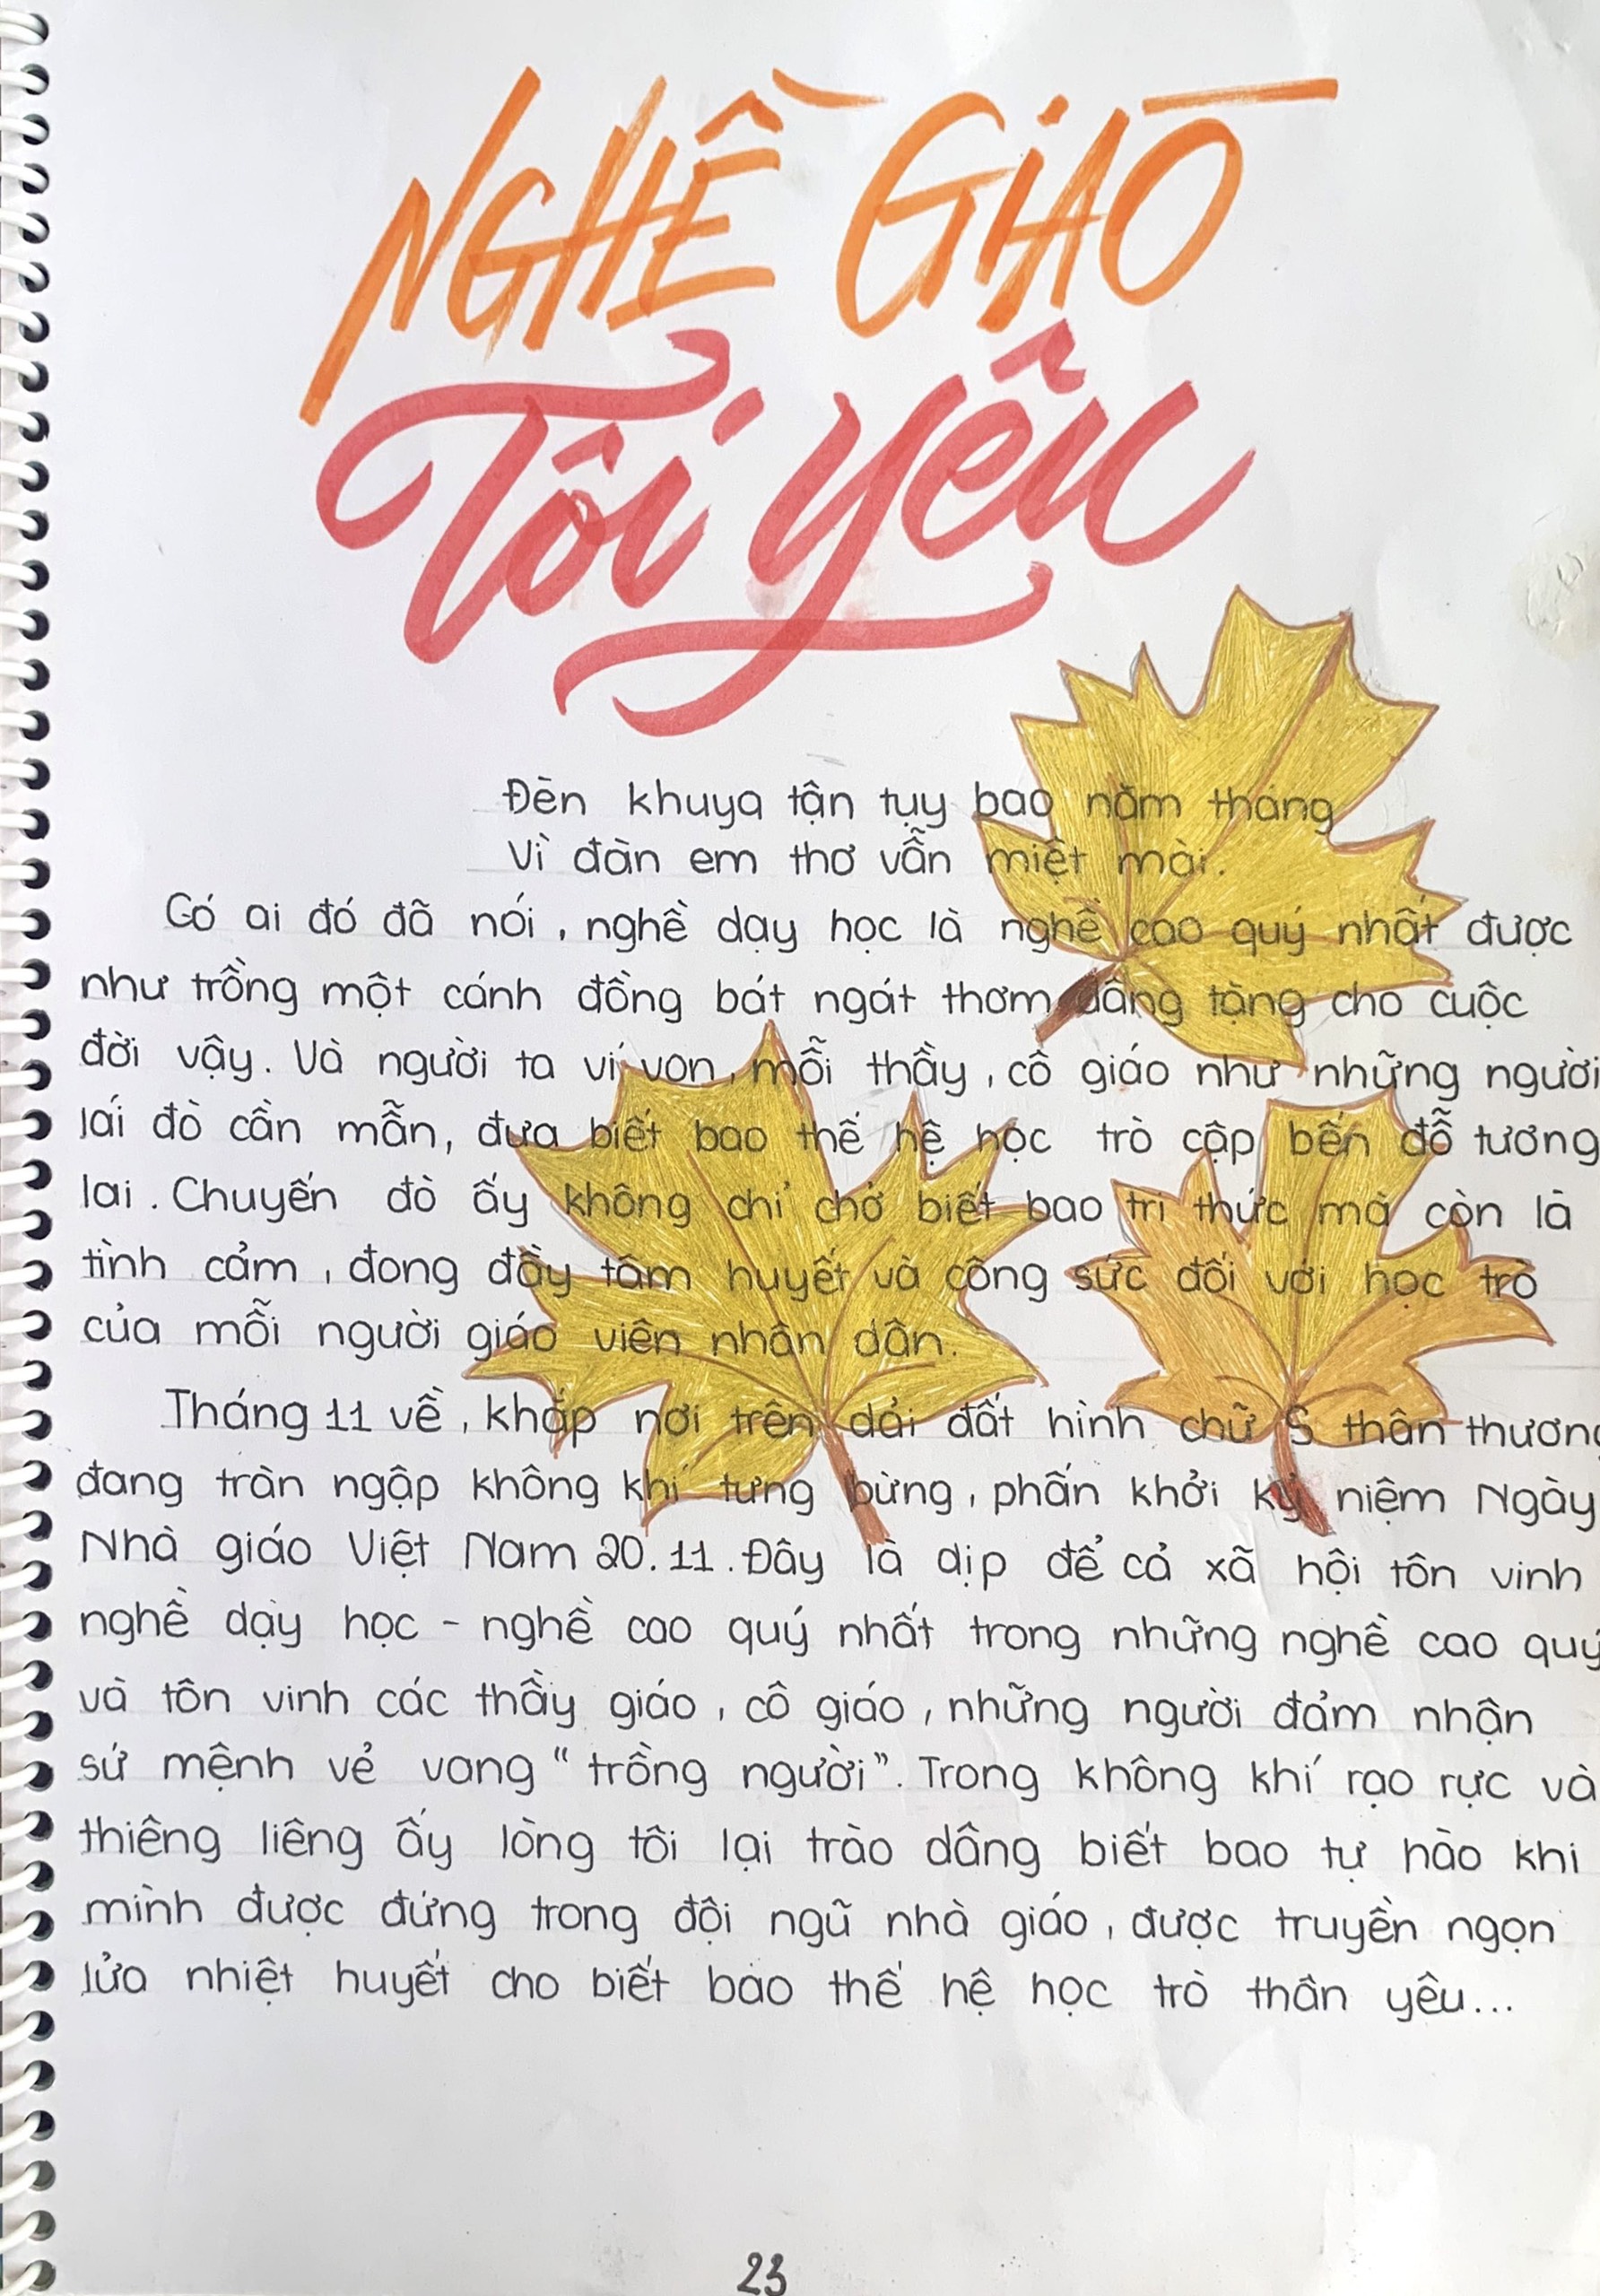 NGHỀ GIÁO
Tôi yêu
Đèn khuya tận tụy bao năm tháng
Vì đàn em thơ vẫn miệt mài.
Có ai đó đã nói, nghề dạy học là nghề cao quý nhất được
như trồng một cánh đồng bát ngát thơm dâng tặng cho cuộc
đời vậy. Và người ta ví von, mỗi thầy, cô giáo như những người
lái đò cần mẫn, đưa biết bao thế hệ học trò cập bến đỗ tương
lai. Chuyến đò ấy không chỉ chở biết bao tri thức mà còn là
tình cảm, đong đầy tâm huyết và công sức đối với học trò
của mỗi người giáo viên nhân dân.
Tháng 11 về, khắp nơi trên dải đất hình chữ S thân thương
đang tràn ngập không khí tưng bừng, phấn khởi kỷ niệm Ngày
Nhà giáo Việt Nam 20.11. Đây là dịp để cả xã hội tôn vinh
nghề dạy học - nghề cao quý nhất trong những nghề cao quý
và tôn vinh các thầy giáo, cô giáo, những người đảm nhận
sứ mệnh vẻ vang "trồng người". Trong không khí rạo rực và
thiêng liêng ấy lòng tôi lại trào dâng biết bao tự hào khi
mình được đứng trong đội ngũ nhà giáo, được truyền ngọn
lửa nhiệt huyết cho biết bao thế hệ học trò thân yêu...
23